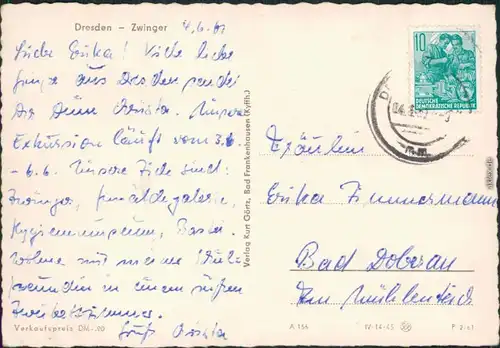 Dresden – Zwinger 4.6.61
Liebe Erika! Viele liebe
Grüsse aus Dresden sendet
Dir Deine Christa. Unsere
Exkursion läuft vom 3.6.
- 6.6. Unsere Ziele sind:
Zwinger, Gemäldegalerie,
Hygienemuseum, Bastei.
Wohne mit meine
in einem
Gruß Christa
Verkaufspreis DM -.20
Verlag Kurt Görtz, Bad Frankenhausen (Kyffh.)
10
DEUTSCHE
DEMOKRATISCHE REPUBLIK
Fräulein
Erika Zimmermann
Bad Doberan
Am Mühlenteich
A 156 IV-14-45 P 2/61